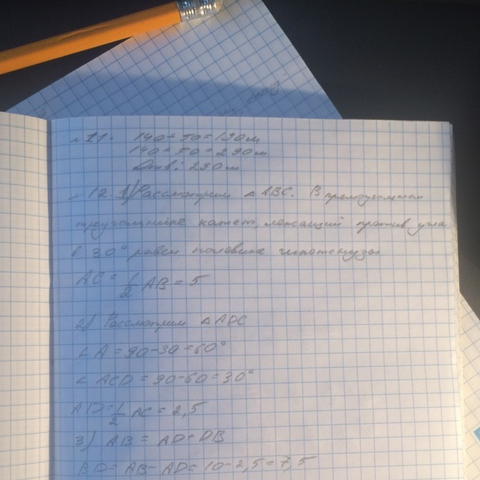 № 11. 140 + 50 = 190 м
140 + 50 = 290 м
Отв: 290 м
№ 12. 1) Рассмотрим △ ABC. В прямоугольном
треугольнике катет, лежащий против угла
в 30° равен половине гипотенузы
AC = 1/2 AB = 5
2) Рассмотрим △ ADC
∠ A = 90 - 30 = 60°
∠ ACD = 90 - 60 = 30°
AD = 1/2 AC = 2,5
3) AB = AD = DB
BD = AB - AD = 10 - 2,5 = 7,5